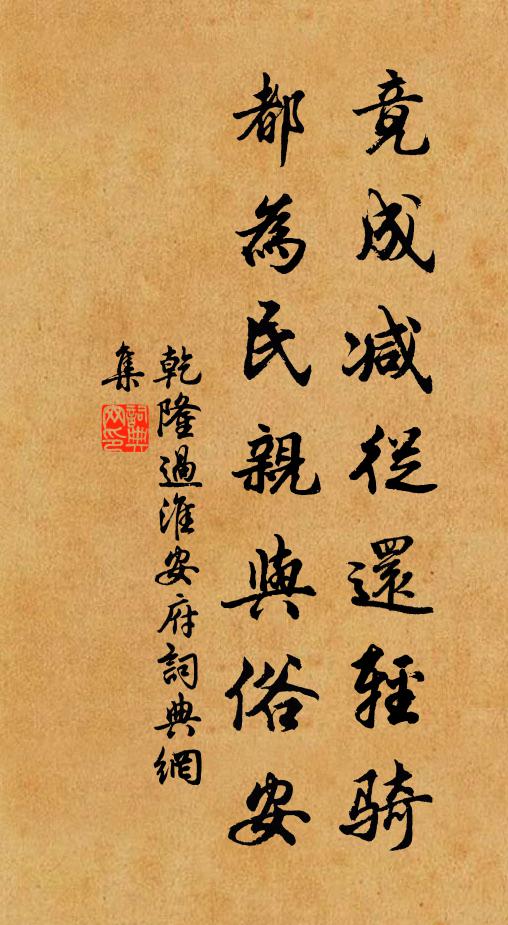 竟成减從還輕騎
都為民親與俗安
乾隆過淮安府詞典網
集
詞典
网印